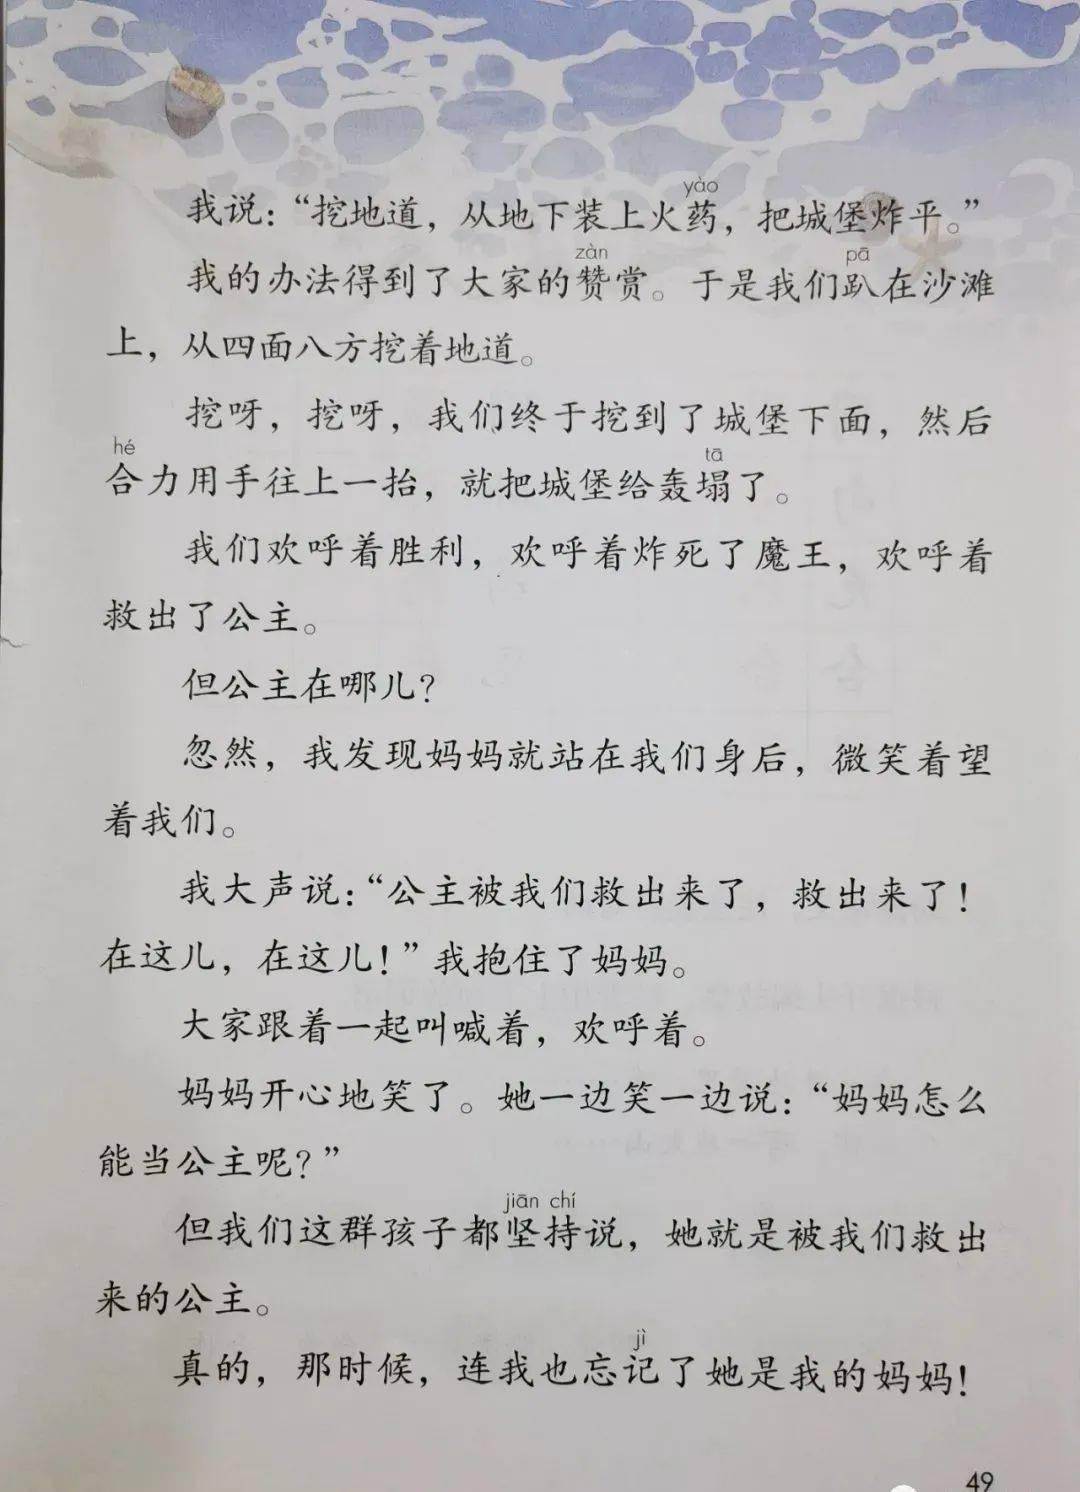 yào
我说：“挖地道，从地下装上火药，把城堡炸平。”
zàn pā
我的办法得到了大家的赞赏。于是我们趴在沙滩
上，从四面八方挖着地道。
挖呀，挖呀，我们终于挖到了城堡下面，然后
hé tā
合力用手往上一抬，就把城堡给轰塌了。
我们欢呼着胜利，欢呼着炸死了魔王，欢呼着
救出了公主。
但公主在哪儿？
忽然，我发现妈妈就站在我们身后，微笑着望
着我们。
我大声说：“公主被我们救出来了，救出来了！
在这儿，在这儿！”我抱住了妈妈。
大家跟着一起叫喊着，欢呼着。
妈妈开心地笑了。她一边笑一边说：“妈妈怎么
能当公主呢？”
jiān chí
但我们这群孩子都坚持说，她就是被我们救出
来的公主。
jì
真的，那时候，连我也忘记了她是我的妈妈！
49